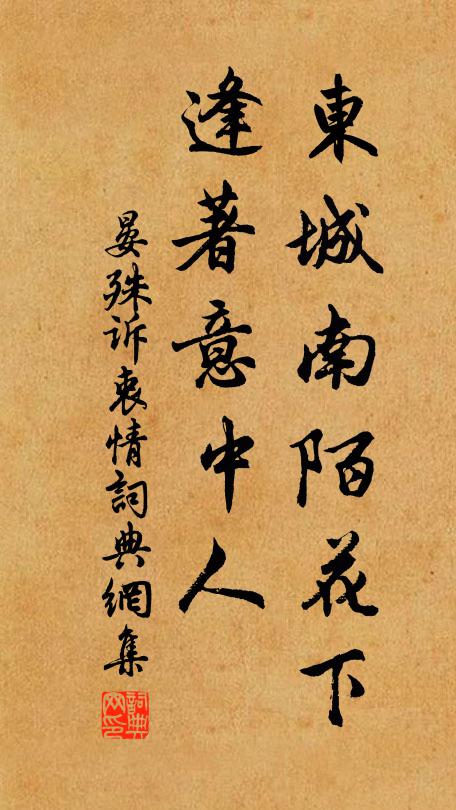 東城南陌花下
逢著意中人
晏殊訴衷情詞典網集
詞典網印